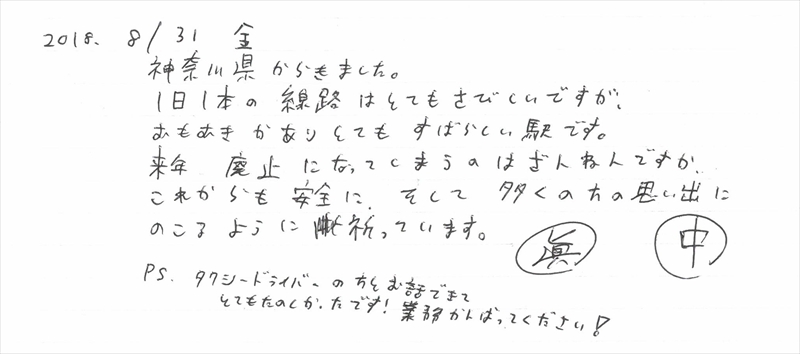 2018. 8/31 金
神奈川県からきました。
1日1本の線路はとてもさびしいですが、
おもむきがありとても すばらしい駅です。
来年 廃止になってしまうのはざんねんですが、
これからも安全に、そして 多くの方の思い出に
のこるように 祈っています。
眞 中
PS. タクシードライバーの方とお話できて
とてもたのしかったです! 業務がんばってください!